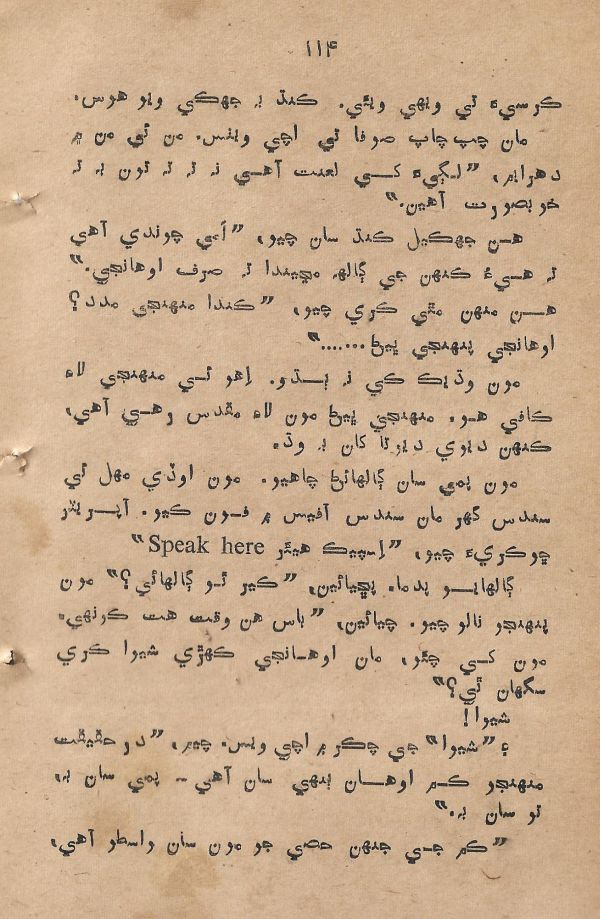 ۱۱۴
ڪرسيءَ تي ويهي ويئي. ڪنڌ بہ جهڪي ويو هوس.
مان چپ چاپ صوفا تي اچي ويٺس. من ئي من ۾
دهرايم، ”لڳيءَ کسي لعنت آهسي نہ تہ تہ تون بہ تہ
خوبصورت آهين.“
هسن جهڪيل ڪنڌ سان چيو، ”اَمي چوندي آهي
تہ هسيءُ ڪنهن جي ڳالهہ مڃيندا تہ صرف اوهانجي.“
هسن منهن مٿي ڪري چيو، ”ڪندا منهنجي مدد؟
اوهانجي پنهنجي ڀيڻ.......“
مون وڌيڪ ڪي نہ ٻڌو. اِهو ئي منهنجي لاءِ
ڪافي هو. منهنجي ڀيڻ مون لاءِ مقدس رهي آهي،
ڪنهن ديوي ديوتا کان بہ وڌ.
مون پمي سان ڳالهائڻ چاهيو. مون اوڏي مهل ئي
سندس گهر مان سندس آفيس ۾ فون ڪيو. آپريٽر
ڇوڪريءَ چيو، ”اِسپيڪ هيئر Speak here“
ڳالهايو پدما. پڇيائين، ”ڪير ٿو ڳالهائي؟“ مون
پنهنجو نالو چيو. چيائين، ”باس هن وقت هت ڪونهي.
مون کي چئو، مان اوهانجي ڪهڙي شيوا ڪري
سگهان ٿي؟“
شيوا!
۽ ”شيوا“ جي چڪر ۾ اچي ويس. چيم، ”درحقيقت
منهنجو ڪم اوهان ٻنهي سان آهي – پمي سان بہ،
تو سان بہ.“
”ڪم جي جنهن حصي جو مون سان واسطو آهي،